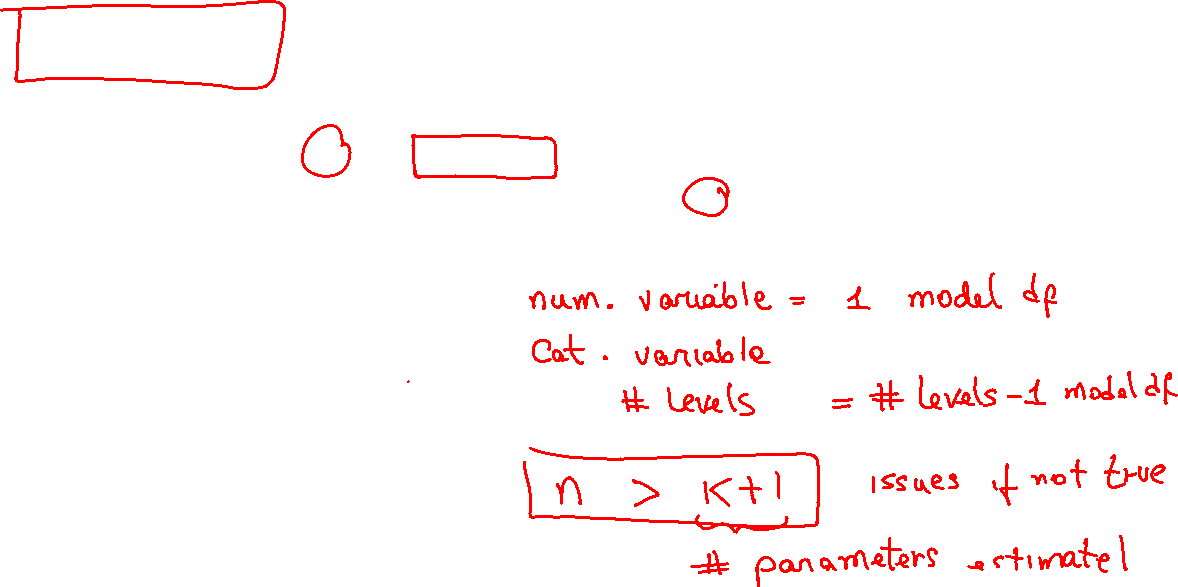 num. variable = 1 model df
Cat. variable
# levels = # levels-1 model df
n > k+1 issues if not true
# parameters estimated